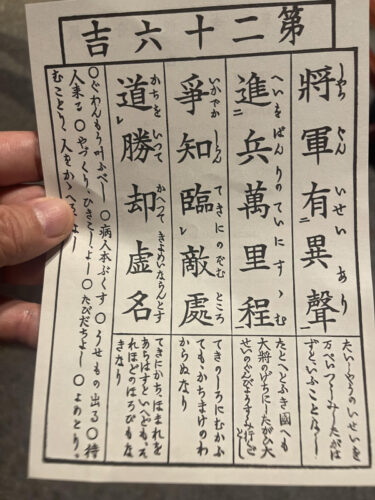 第二十六吉
將軍有異聲
しやうぐんいせいあり
たいしやうのいせいを
万ぺいつゝしみしたがは
ずといふことなし
進兵萬里程
へいをばんりのていにすゝむ
たとへとふき國へも
大将のげぢにしたがひ大
せいのぐんびやうすゝみ行ごとし
爭知臨敵處
いかでかしらんてきにのぞむところ
てきのしろにむかふ
ても、かちまけのわ
からぬなり
道勝却虚名
かちをいつてかへつてきよめいならんとす
てきにかち、ほまれを
あらはすといへども、そ
れほどのほろびもな
きなり
○ぐわんもう叶ふべし○病人本ぶくす○うせもの出る○待
人来る○やづくり、ひきこしよし○たびだちよし○よめとり、
むことり、人をかゝへるよし